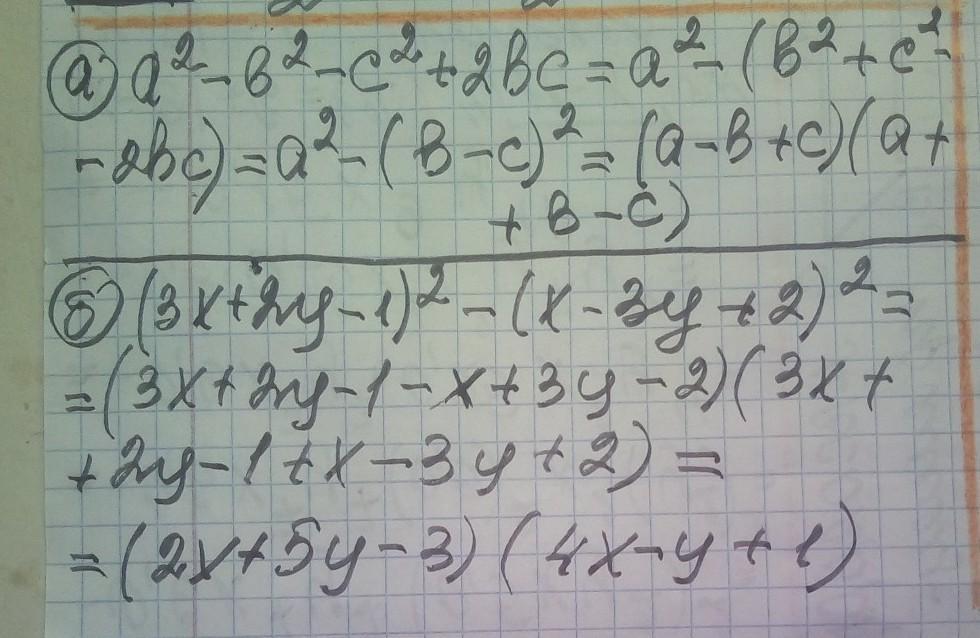 а) a² - в² - c² + 2вc = a² - (в² + c² -
- 2вc) = a² - (в - c)² = (a - в + c)(a +
+ в - c)
б) (3x + 2y - 1)² - (x - 3y + 2)² =
= (3x + 2y - 1 - x + 3y - 2)(3x +
+ 2y - 1 + x - 3y + 2) =
= (2x + 5y - 3)(4x - y + 1)